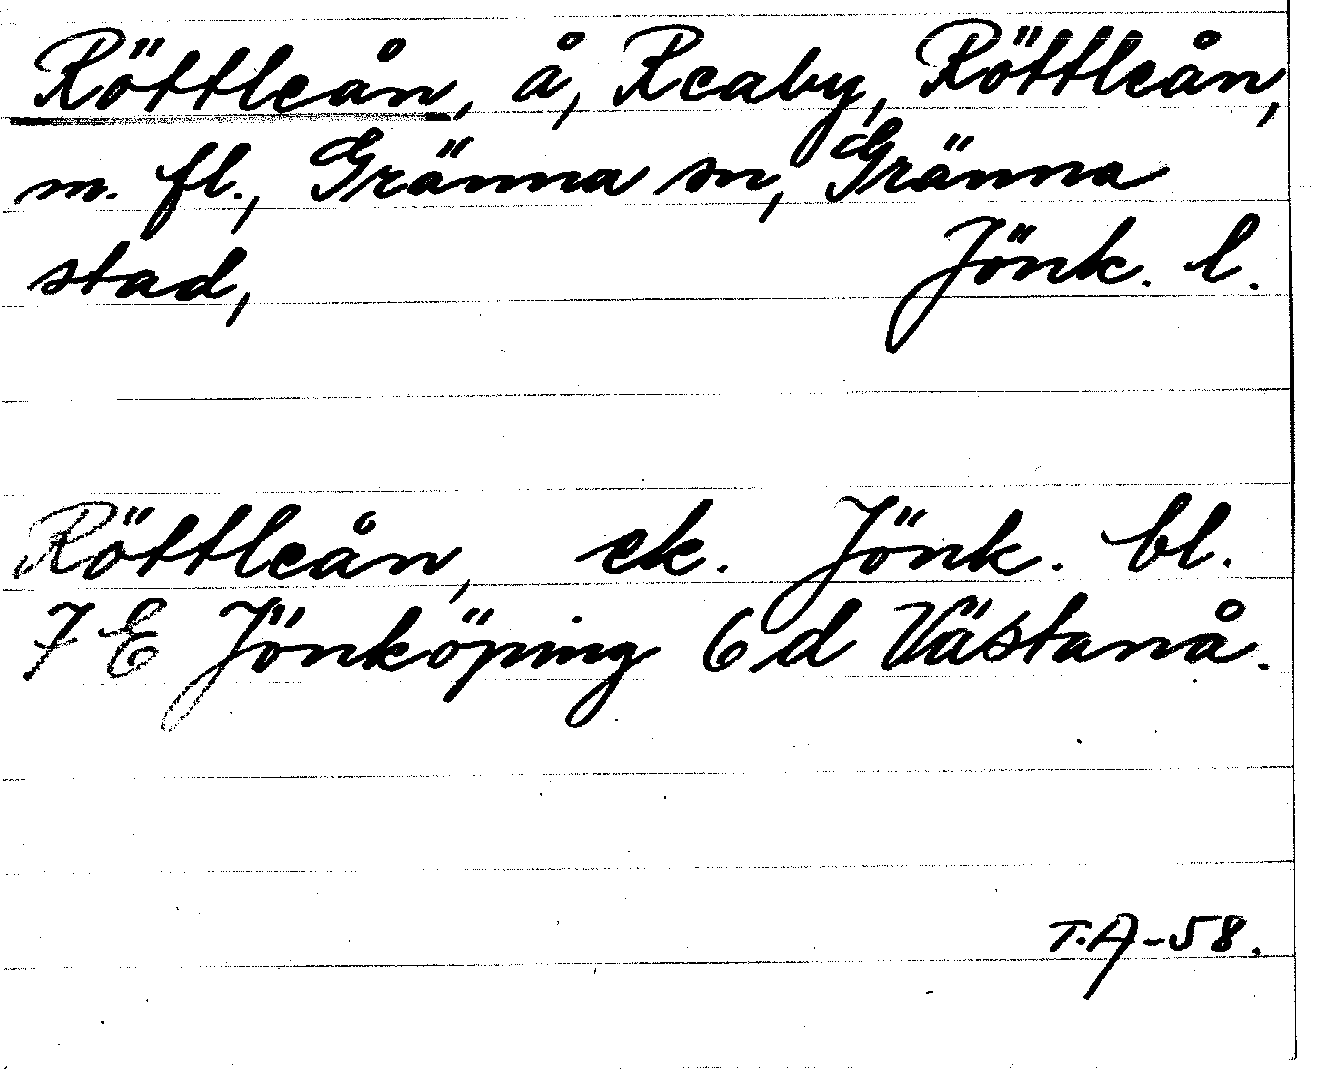 Röttleån, å, Reaby, Röttleån,
m. fl., Gränna sn, Gränna
stad, Jönk. l.
Röttleån, ek. Jönk. bl.
7 E Jönköping 6 d Västanå.
T.A-58.